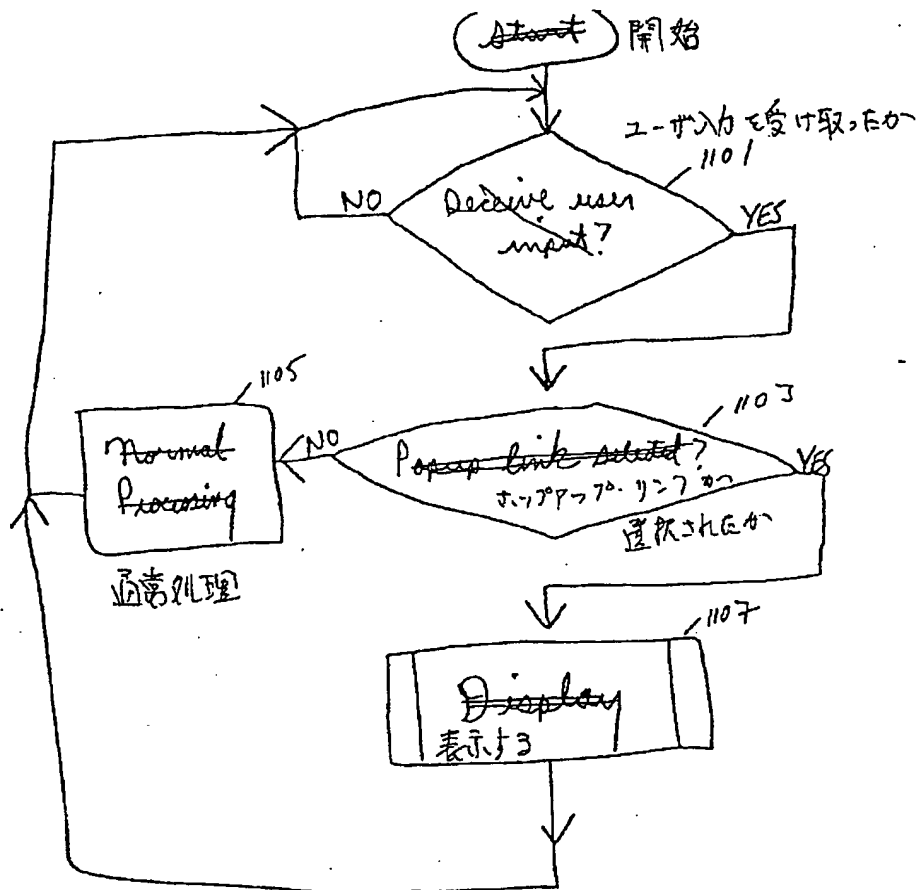 start 開始
ユーザ入力を受け取ったか
1101
NO
Receive user
input?
YES
1105
1103
Normal
Processing
NO
Popup link selected?
YES
ポップアップ・リンクが
選択されたか
通常処理
1107
Display
表示する